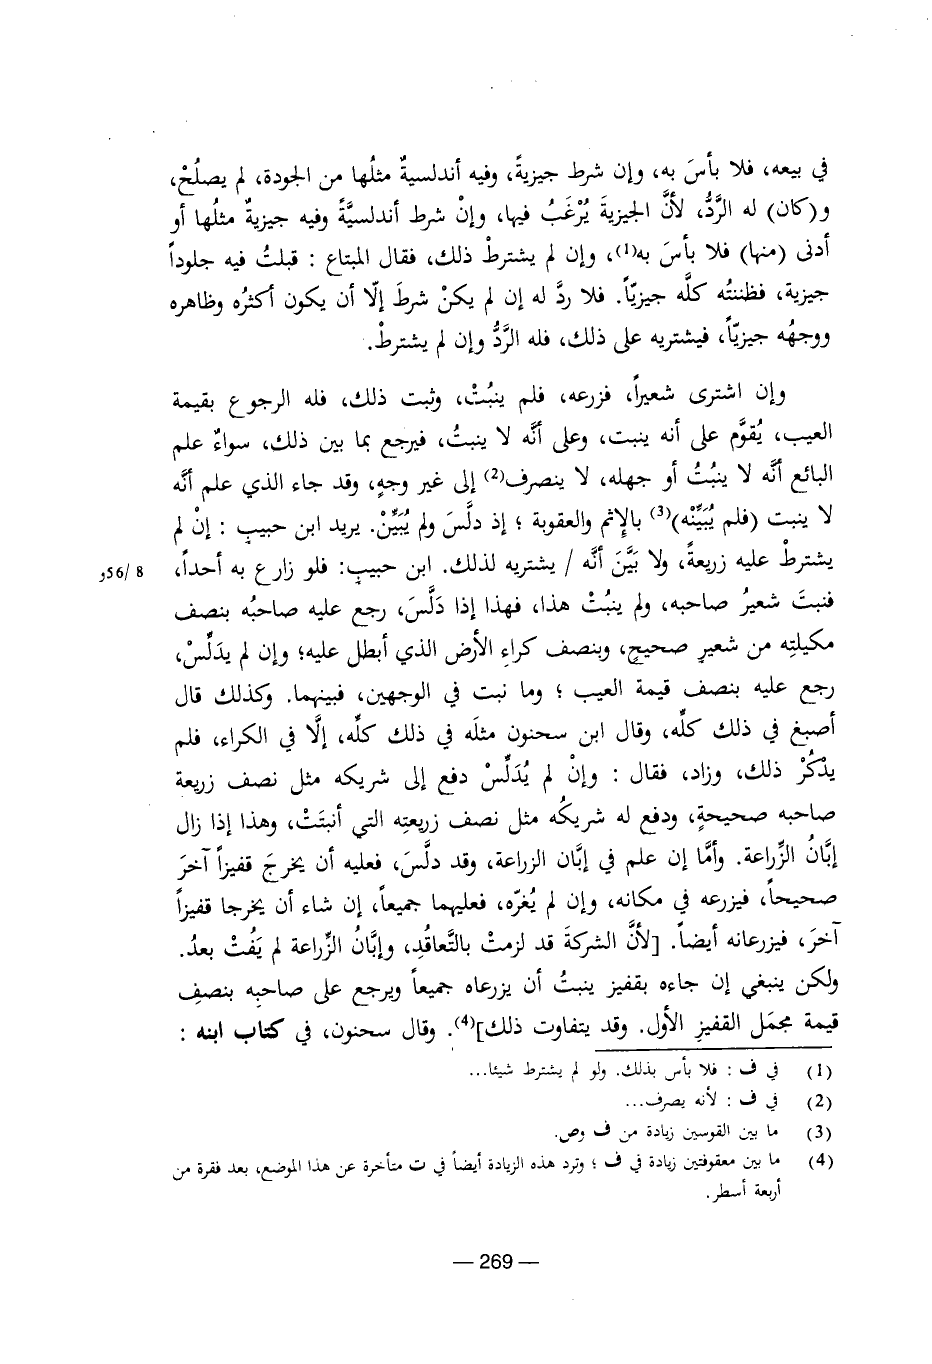 في بيعه، فلا بأسَ به، وإن شرط جيزيةً، وفيه أندلسيةٌ مثلُها من الجودة، لم يصلُحْ،
و(كان) له الرَّدُّ، لأنَّ الجيزيةَ يُرْغَبُ فيها، وإنْ شرط أندلسيَّةً وفيه جيزيةٌ مثلُها أو
أدنى (منها) فلا بأسَ به(1)، وإن لم يشترطْ ذلك، فقال المبتاع : قبلتُ فيه جلوداً
جيزية، فظننتُه كلَّه جيزيّاً. فلا ردَّ له إن لم يكنْ شرطَ إلّا أن يكون أكثرُه وظاهره
ووجهُه جيزيّاً، فيشتريه على ذلك، فله الرَّدُّ وإن لم يشترطْ.
وإن اشترى شعيراً، فزرعه، فلم ينبُتْ، وثبت ذلك، فله الرجوع بقيمة
العيب، يُقوَّم على أنه ينبت، وعلى أنَّه لا ينبتُ، فيرجع بما بين ذلك، سواءٌ علم
البائع أنَّه لا ينبُتُ أو جهله، لا ينصرف(2) إلى غير وجهٍ، وقد جاء الذي علم أنَّه
لا ينبت (فلم يُبَيِّنْه)(3) بالإثم والعقوبة ؛ إذ دلَّسَ ولم يُبَيِّنْ. يريد ابن حبيب : إنْ لم
يشترطْ عليه زريعةً، ولا بَيَّنَ أنَّه / يشتريه لذلك. ابن حبيبٍ: فلو زارع به أحداً،
8 /56و
فنبتَ شعيرُ صاحبه، ولم ينبُتْ هذا، فهذا إذا دَلَّسَ، رجع عليه صاحبُه بنصف
مكيلتِه من شعيرٍ صحيحٍ، وبنصف كراءِ الأرض الذي أبطل عليه؛ وإن لم يدَلِّسْ،
رجع عليه بنصف قيمة العيب ؛ وما نبت في الوجهين، فبينهما. وكذلك قال
أصبغ في ذلك كلِّه، وقال ابن سحنون مثلَه في ذلك كلِّه، إلَّا في الكراء، فلم
يذْكُرْ ذلك، وزاد، فقال : وإنْ لم يُدَلِّسْ دفع إلى شريكه مثل نصف زريعة
صاحبه صحيحةٍ، ودفع له شريكُه مثل نصف زريعتِه التي أنبتَتْ، وهذا إذا زال
إبَّانُ الزِّراعة. وأمَّا إن علم في إبَّان الزراعة، وقد دلَّسَ، فعليه أن يخرجَ قفيزاً آخرَ
صحيحاً، فيزرعه في مكانه، وإن لم يُغرّه، فعليهما جميعاً، إن شاء أن يخرجا قفيزاً
آخرَ، فيزرعانه أيضاً. [لأنَّ الشركةَ قد لزمتْ بالتَّعاقُدِ، وإبَّانُ الزِّراعة لم يَفُتْ بعدُ.
ولكن ينبغي إن جاءه بقفيز ينبتُ أن يزرعاه جميعاً ويرجع على صاحبه بنصفِ
قيمة مجمَل القفيزِ الأول. وقد يتفاوت ذلك](4). وقال سحنون، في كتاب ابنه :
(1) في ف : فلا بأس بذلك. ولو لم يشترط شيئا...
(2) في ف : لأنه يصرف...
(3) ما بين القوسين زيادة من ف وص.
(4) ما بين معقوفتين زيادة في ف ؛ وترد هذه الزيادة أيضاً في ت متأخرة عن هذا الموضع، بعد فقرة من
أربعة أسطر.
— 269 —